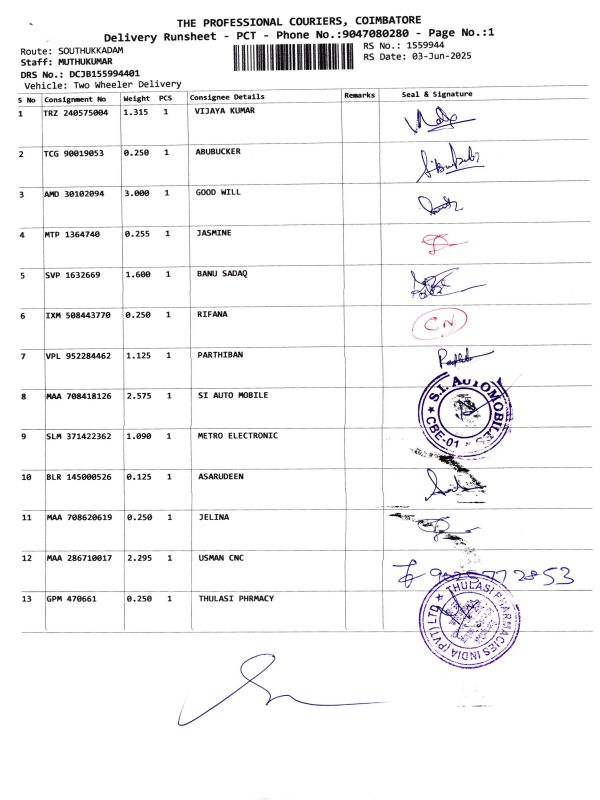 THE PROFESSIONAL COURIERS, COIMBATORE
Delivery Runsheet - PCT - Phone No.:9047080280 - Page No.:1
Route: SOUTHUKKADAM
RS No.: 1559944
Staff: MUTHUKUMAR
RS Date: 03-Jun-2025
DRS No.: DCJB155994401
Vehicle: Two Wheeler Delivery
S No Consignment No Weight PCS Consignee Details Remarks Seal & Signature
1 TRZ 240575004 1.315 1 VIJAYA KUMAR
2 TCG 90019053 0.250 1 ABUBUCKER
3 AMD 30102094 3.000 1 GOOD WILL
4 MTP 1364740 0.255 1 JASMINE
5 SVP 1632669 1.600 1 BANU SADAQ
6 IXM 508443770 0.250 1 RIFANA CN
7 VPL 952284462 1.125 1 PARTHIBAN
8 MAA 708418126 2.575 1 SI AUTO MOBILE
S.I. AUTOMOBILES
CBE-01
9 SLM 371422362 1.090 1 METRO ELECTRONIC
10 BLR 145000526 0.125 1 ASARUDEEN
11 MAA 708620619 0.250 1 JELINA
12 MAA 286710017 2.295 1 USMAN CNC
13 GPM 470661 0.250 1 THULASI PHRMACY
THULASI PHARMACIES INDIA (PVT) LTD